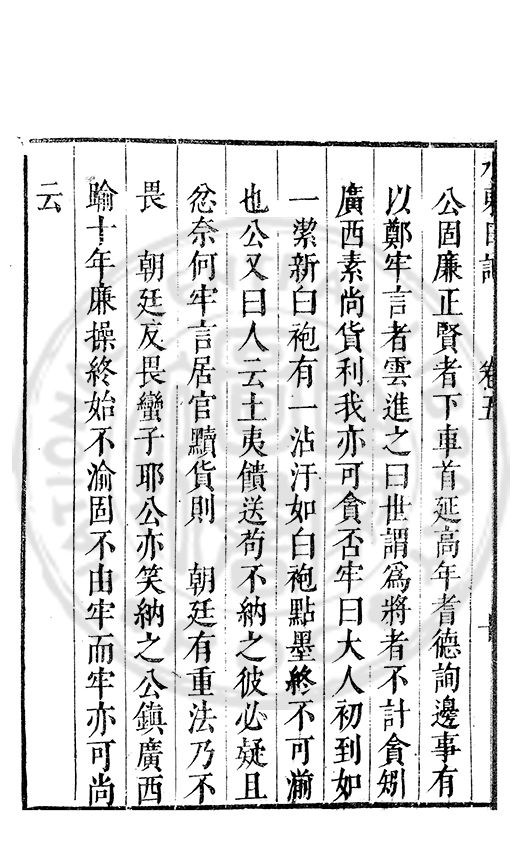 水東日記 卷五 十
公固廉正賢者下車首延高年耆德詢邊事有
以鄭牢言者雲進之曰世謂為將者不計貪矧
廣西素尚貨利我亦可貪否牢曰大人初到如
一潔新白袍有一沾汙如白袍點墨終不可湔
也公又曰人云土夷饋送苟不納之彼必疑且
忿奈何牢言居官黷貨則 朝廷有重法乃不
畏 朝廷反畏蠻子耶公亦笑納之公鎮廣西
踰十年廉操終始不渝固不由牢而牢亦可尚
云